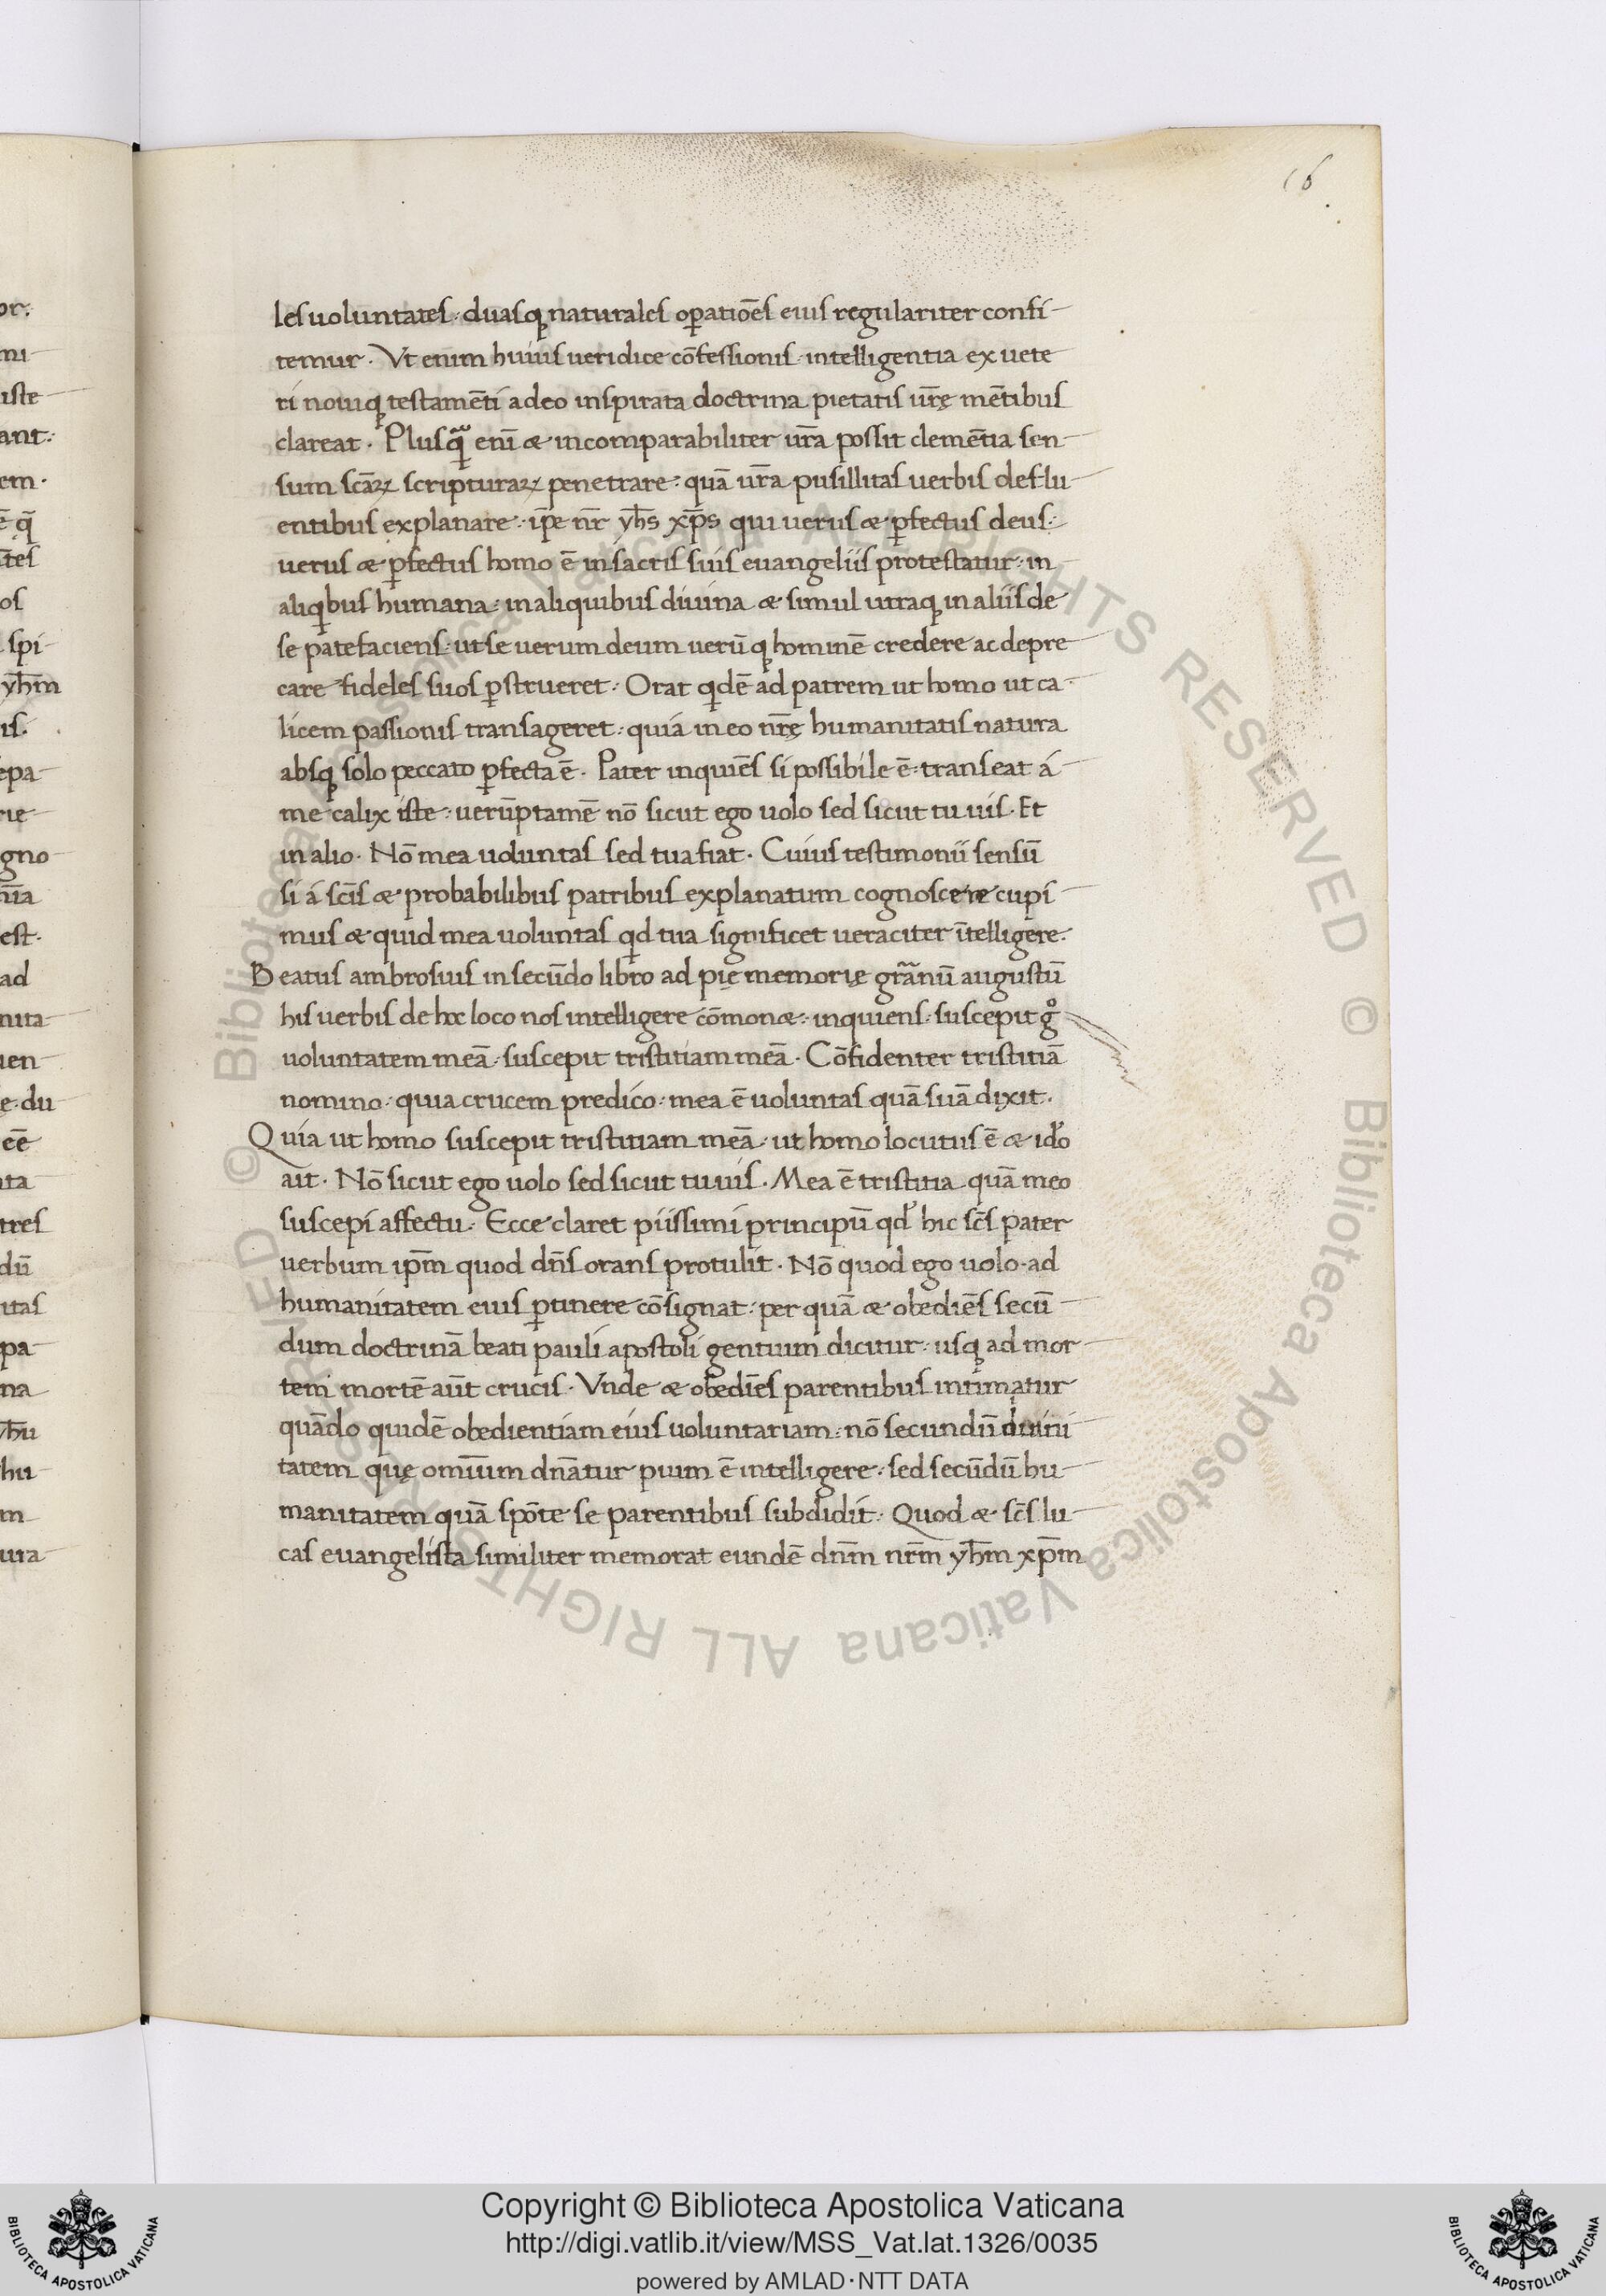 16
les uoluntates · duasq; naturales op̱atiōes eius regulariter confi-
temur · Vt enim huius ueridice cōfessionis · intelligentia ex uete
ri nouiq; testamēti a deo inspirata doctrina pietatis ur̄ę mētibus
clareat · Plusq̄ enī & incomparabiliter ur̄a possit clemētia sen-
sum scāꝝ scripturaꝝ penetrare · quā ur̄a pusillitas uerbis deflu-
entibus explanare · ip̄e nr̄ yh̄s xp̄s qui uerus & ꝑfectus deus ·
uerus & ꝑfectus homo ē in sacris suis euangeliis protestatur · in
aliqibus humana · in aliquibus diuina & simul utraq; in aliis de
se patefaciens · ut se uerum deum uerū q; hominē credere ac depre
care fideles suos ꝑstrueret · Orat qdē ad patrem ut homo ut ca-
licem passionis transageret · quia in eo nr̄ę humanitatis natura
absq; solo peccato ꝑfecta ē · Pater inquiēs si possibile ē · transeat á
me calix iste · uerūptamē nō sicut ego uolo sed sicut tu uis · Et
in alio · Nō mea uoluntas sed tua fiat · Cuius testimonii sensū
si á scīs & probabilibus patribus explanatum cognoscere cupi
mus & quid mea uoluntas qd tua significet ueraciter ītelligere ·
Beatus ambrosius in secūdo libro ad pię memorię gr̄anū augustū
his uerbis de hoc loco nos intelligere cōmon& · inquiens · suscepit gͦ
uoluntatem meā · suscepit tristitiam meā · Cōfidenter tristitiā
nomino · quia crucem predico · mea ē uoluntas quā suā dixit ·
Quia ut homo suscepit tristitiam meā · ut homo locutus ē & ido
ait · Nō sicut ego uolo sed sicut tu uis · Mea ē tristitia quā meo
suscepi affectu · Ecce claret piissimi principū qd hic scs̄ pater
uerbum ip̄m quod dn̄s orans protulit · Nō quod ego uolo · ad
humanitatem eius ꝑtinere cōsignat · per quā & obediēs secū
dum doctrinā beati pauli apostoli gentium dicitur · usq; ad mor
tem mortē aūt crucis · Vnde & obediēs parentibus intimatur
quādo quidē obedientiam eius uoluntariam · nō secundū diuini
tatem quę omīum dn̄atur pium ē intelligere · sed secūdū hu-
manitatem quā spōte se parentibus subdidit · Quod & scs̄ lu-
cas euangelista similiter memorat eundē dn̄m nr̄m yh̄m xp̄m
© Biblioteca Apostolica Vaticana ALL RIGHTS RESERVED © Biblioteca Apostolica Vaticana ALL RIGHTS RESERVED
Copyright © Biblioteca Apostolica Vaticana
http://digi.vatlib.it/view/MSS_Vat.lat.1326/0035
powered by AMLAD·NTT DATA
BIBLIOTECA APOSTOLICA VATICANA
BIBLIOTECA APOSTOLICA VATICANA